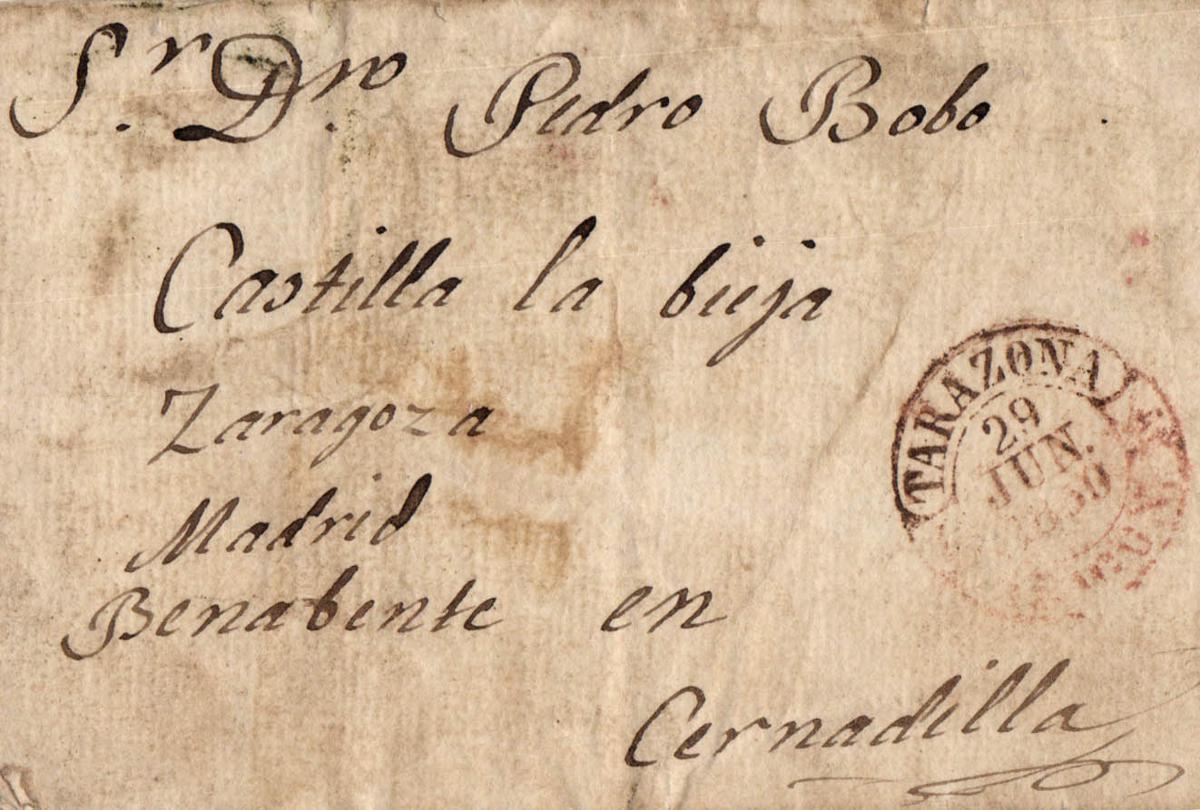 Sr. Dn. Pedro Bobo
Castilla la bieja
Zaragoza
Madrid
Benabente en
Cernadilla
TARAZONA
29
JUN.
1850